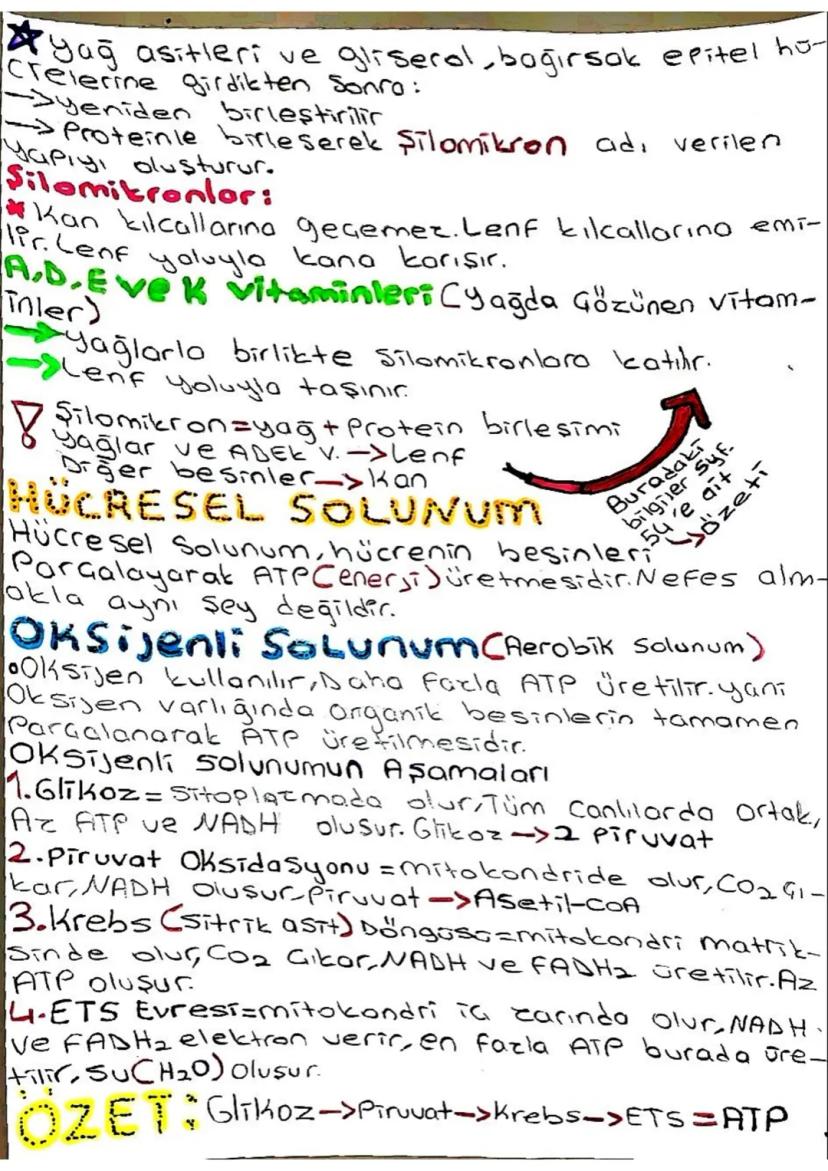 ☆ yağ asitleri ve gliserol, bağırsak epitel hü-
crelerine girdikten sonra:
→ yeniden birleştirilir
→ Proteinle birleşerek Şilomikron adı verilen
yapıyı oluşturur.
Şilomikronlar:
* Kan kılcallarına geçemez. Lenf kılcallarına emi-
lir. Lenf yoluyla kana karışır.
A, D, E ve K vitaminleri (yağda Gözünen vitam-
inler)
→ yağlarla birlikte silomikronlara katılır.
→ Lenf yoluyla taşınır.
! Şilomikron = yağ + Protein birleşimi
yağlar ve ADEK V. → Lenf
Diğer besinler → Kan
Buradaki
bilgiler syf.
54'e ait
→ özeti
HÜCRESEL SOLUNUM
Hücresel Solunum, hücrenin besinleri
Parçalayarak ATP (enerji) üretmesidir. Nefes alm-
akla aynı şey değildir.
OKSijenli SOLUNUM (Aerobik solunum)
• Oksijen kullanılır, Daha fazla ATP üretilir. yani
Oksijen varlığında organik besinlerin tamamen
Parçalanarak ATP üretilmesidir.
OKSijenli solunumun Aşamaları
1. Glikoz = sitoplazmada olur, Tüm canlılarda ortak,
Az ATP ve NADH oluşur. Glikoz → 2 piruvat
2. Piruvat Oksidasyonu = mitokondride olur, CO2 çı-
kar, NADH oluşur. Piruvat → Asetil-CoA
3. Krebs (sitrik asit) Döngüsü = mitokondri matrik-
sinde olur, CO2 çıkar, NADH ve FADH2 üretilir. Az
ATP oluşur.
4. ETS Evresi = mitokondri iç zarında olur, NADH
ve FADH2 elektron verir, en fazla ATP burada üre-
tilir, su (H2O) oluşur.
ÖZET: Glikoz → Piruvat → Krebs → ETS = ATP